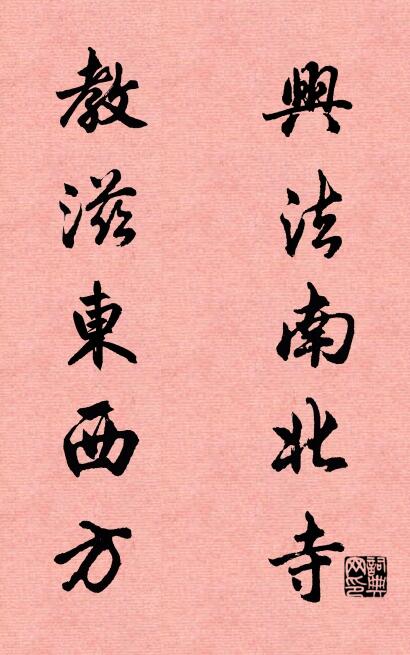 興法南北寺
教滋東西方
詞典网印